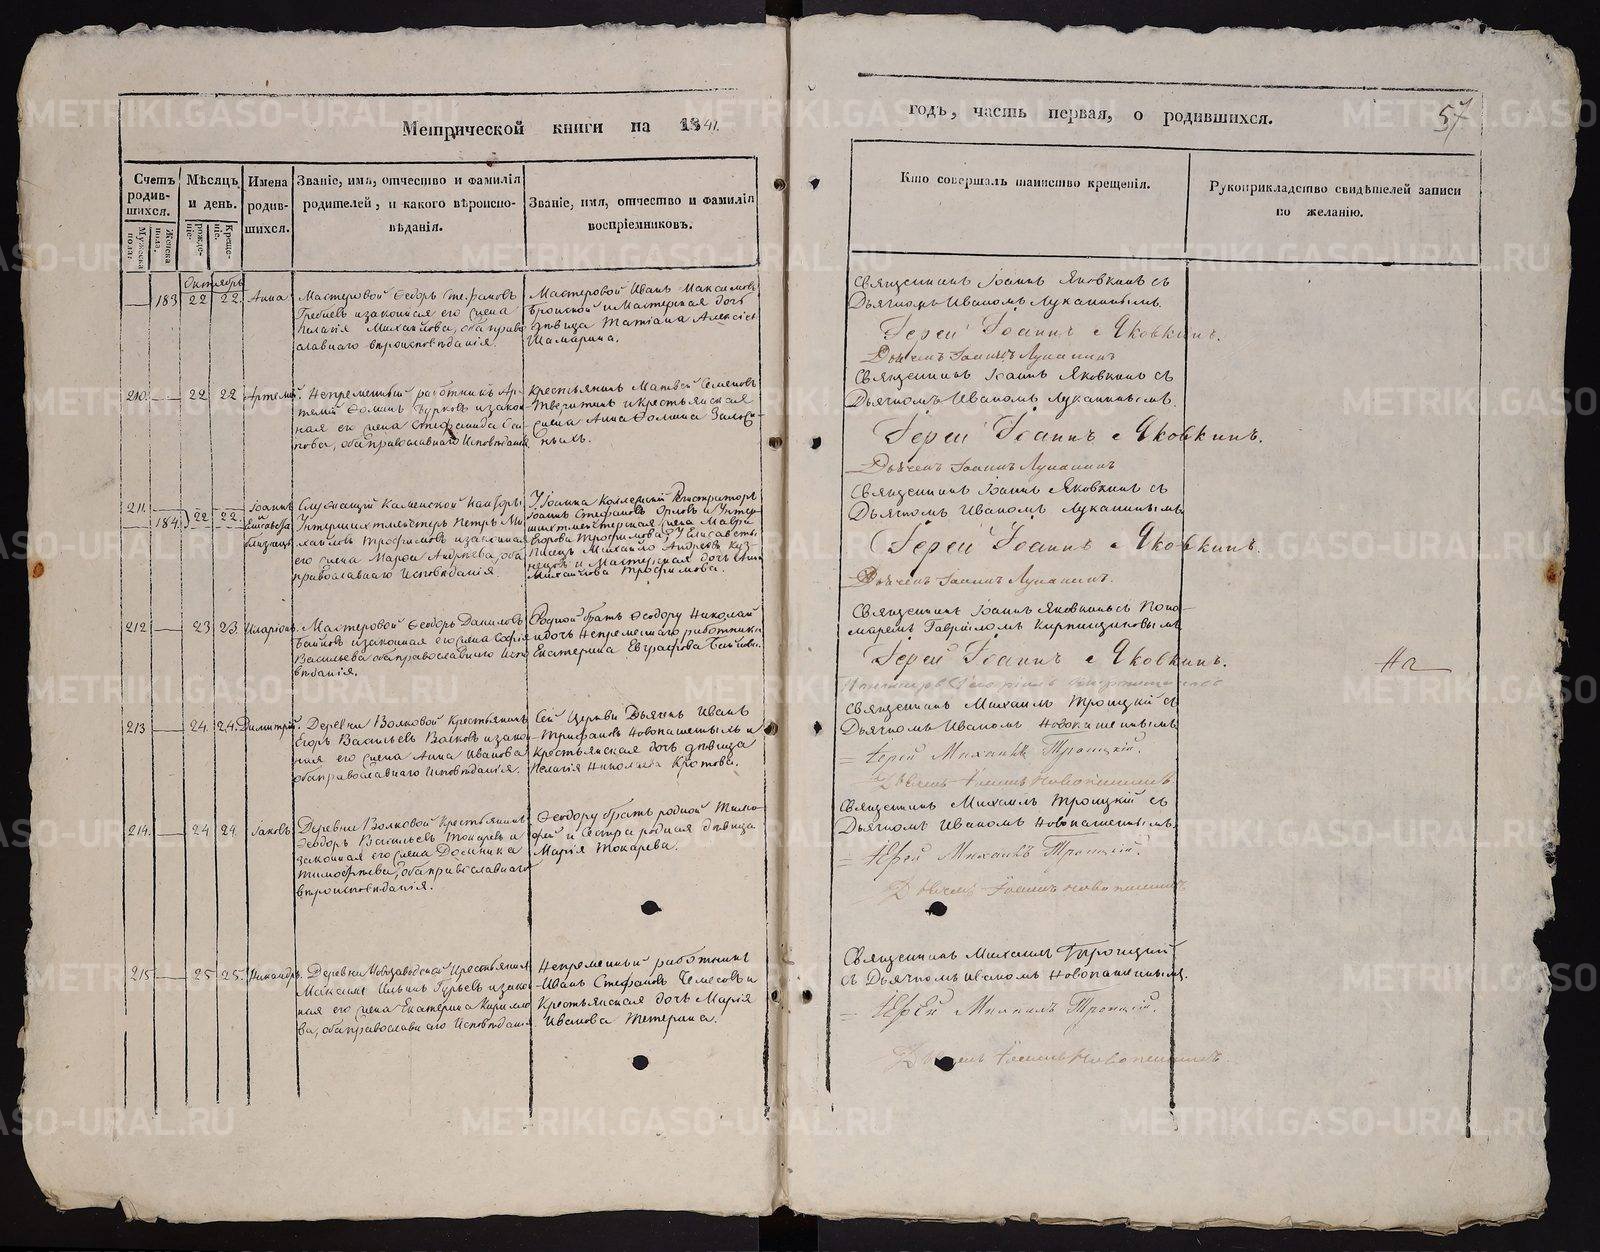 Метрической книги на 1841.
годъ, часть первая, о родившихся.
57
Счетъ родив-
шихся.
Мужеска пола.
Женска пола.
Мѣсяцъ
и день.
рожде-
ніе.
креще-
ніе.
Имена
родив-
шихся.
Званіе, имя, отчество и фамилія
родителей, и какого вѣроиспо-
вѣданія.
Званіе, имя, отчество и фамилія
воспріемниковъ.
Кто совершалъ таинство крещенія.
Рукоприкладство свидѣтелей записи
по желанію.
Октябрь
183 22 22. Анна
Мастеровой Ѳедоръ Стефановъ
и законная его жена
Пелагія Михайлова, оба право
славнаго вѣроисповѣданія.
Мастеровой Иванъ Максимовъ
и Мастерская дочь
дѣвица Татіана Алексіева
Шамарина.
Священникъ Іоаннъ Яковкинъ съ
Дьячкомъ Иваномъ Луканинымъ.
Іерей Іоаннъ Яковкинъ.
Дьячекъ Іоаннъ Луканинъ
210. 22 22 Артемій.
Непременный работникъ Ар-
темій Ѳоминъ и закон
ная его жена Стефанида
оба православнаго исповѣданія
Крестьянинъ Матвей Семеновъ
и крестьянская
жена Анна Ѳомина
Священникъ Іоаннъ Яковкинъ съ
Дьячкомъ Иваномъ Луканинымъ.
Іерей Іоаннъ Яковкинъ.
Дьячекъ Іоаннъ Луканинъ
211. 184. 22 22
Іоаннъ
и
Елисавета
близнецы
Служащій Каменской Конторы
Унтершихтмейстеръ Петръ Ми
хайловъ Трофимовъ и законная
его жена Марѳа Андреева, оба
православнаго исповѣданія.
У Іоанна Коллежскій Регистраторъ
Іоаннъ Стефановъ Орловъ и Унтер-
шихтмейтерская жена Мавра
Трофимова; У Елисаветы
Писецъ Михайло Андреевъ Куз
нецовъ и Мастерская дочь
Михайлова Трофимова.
Священникъ Іоаннъ Яковкинъ съ
Дьячкомъ Иваномъ Луканинымъ
Іерей Іоаннъ Яковкинъ.
Дьячекъ Іоаннъ Луканинъ.
212 23 23. Иларіонъ.
Мастеровой Ѳеодоръ Даниловъ
и законная его жена Софія
Васильева оба православнаго испо
вѣданія.
Родной братъ Ѳеодору Николай
и дочь непременнаго работника
Екатерина Евграфова
Священникъ Іоаннъ Яковкинъ съ Поно-
маремъ Гавріиломъ Кирпищиковымъ
Іерей Іоаннъ Яковкинъ.
213 24. 24. Димитрій.
Деревни Волковой Крестьянинъ
Егоръ Васильевъ Волковъ и закон
ная его жена Анна Иванова
оба православнаго исповѣданія.
Сей Церкви Дьячекъ Иванъ
Трифановъ Новопашенныхъ и
Крестьянская дочь дѣвица
Пелагія Николаева Кротова.
Священникъ Михаилъ Троицкій съ
Дьячкомъ Иваномъ Новопашеннымъ
Іерей Михаилъ Троицкій.
214. 24 24. Іаковъ.
Деревни Волковой Крестьянинъ
Ѳеодоръ Васильевъ Токаревъ и
законная его жена Домника
Тимофѣева, оба православнаго
вѣроисповѣданія.
Ѳеодору братъ родной Тимо-
фей и сестра родная дѣвица
Марія Токарева.
Священникъ Михаилъ Троицкій съ
Дьячкомъ Иваномъ Новопашеннымъ.
Іерей Михаилъ Троицкій.
215 25 25. Никандръ.
Деревни Новозаводской Крестьянинъ
Максимъ Ильинъ Гурьевъ и закон
ная его жена Екатерина Кирилло
ва, оба православнаго исповѣданія
Непременный работникъ
Иванъ Стефановъ Чемесовъ и
Крестьянская дочь Марія
Иванова Тетерина.
Священникъ Михаилъ Троицкій
съ Дьячкомъ Иваномъ Новопашеннымъ.
Іерей Михаилъ Троицкій.
METRIKI.GASO-URAL.RU